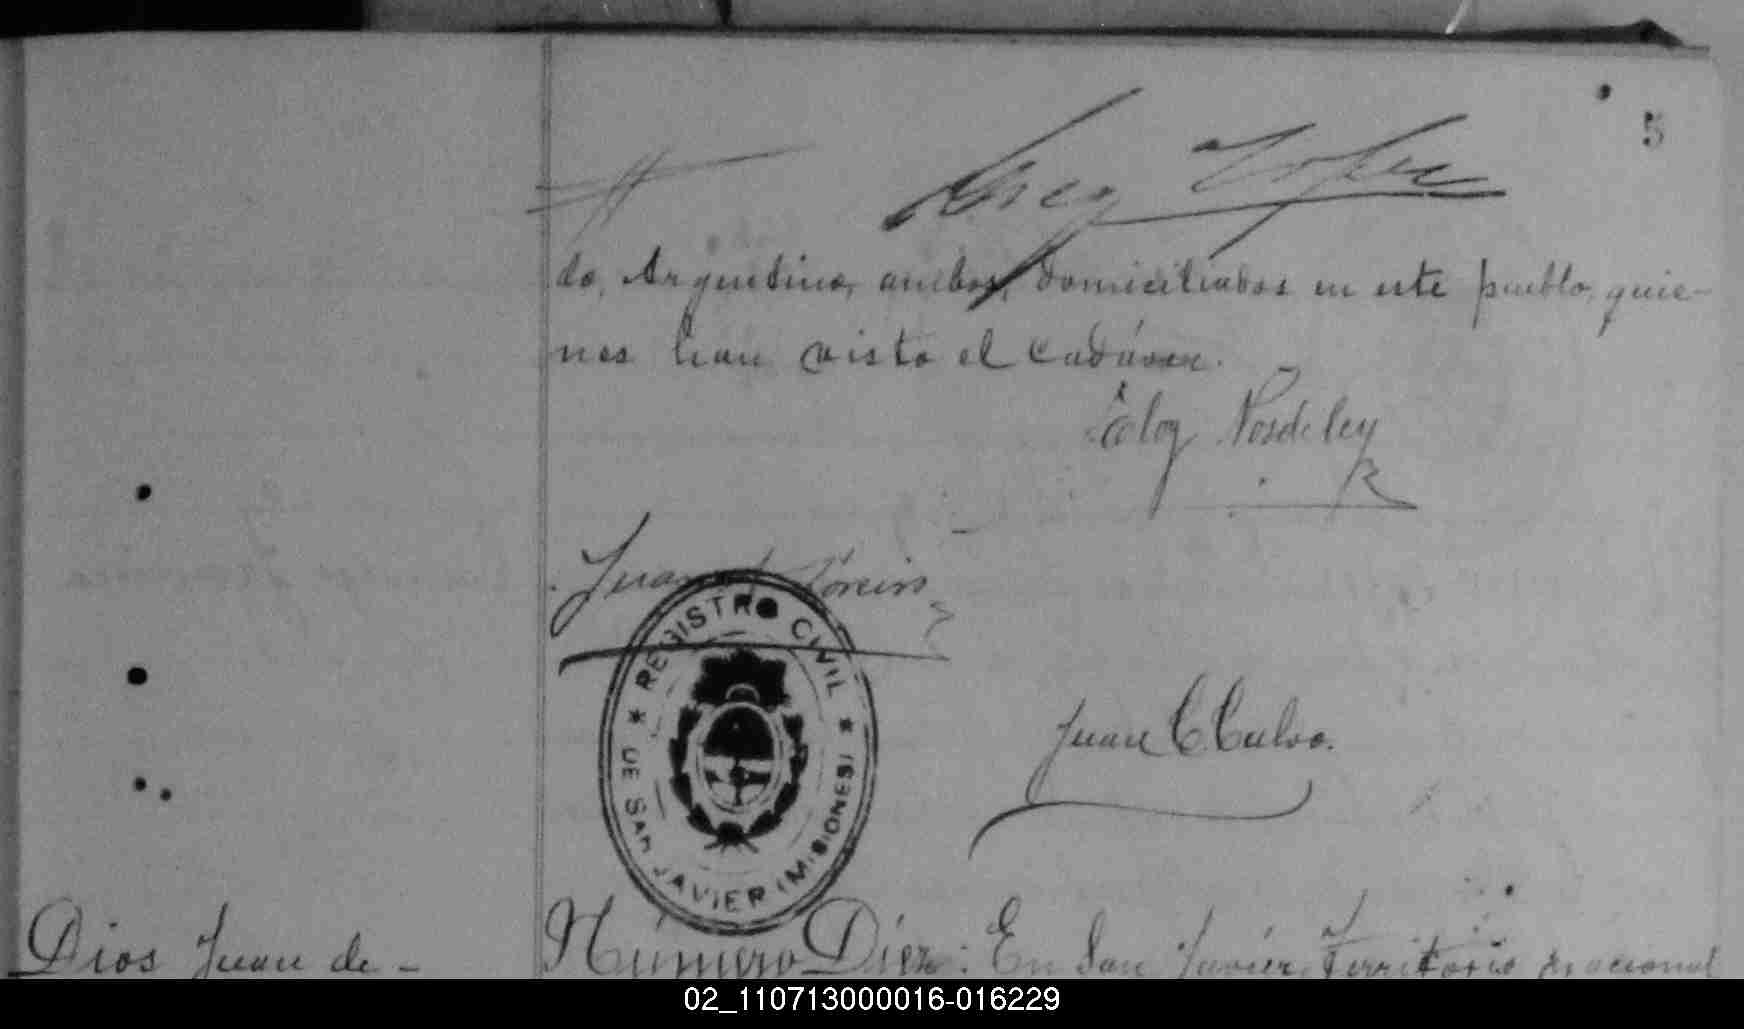 5
do, Argentino, ambos, domiciliados en este pueblo, quie-
nes han visto el cadáver.
Eloy
Juan
REGISTRO CIVIL
* DE SAN JAVIER (MISIONES) *
Juan C. Calvo.
Dios Juan de -
Número Diez: En San Javier, Territorio Nacional
02_110713000016-016229